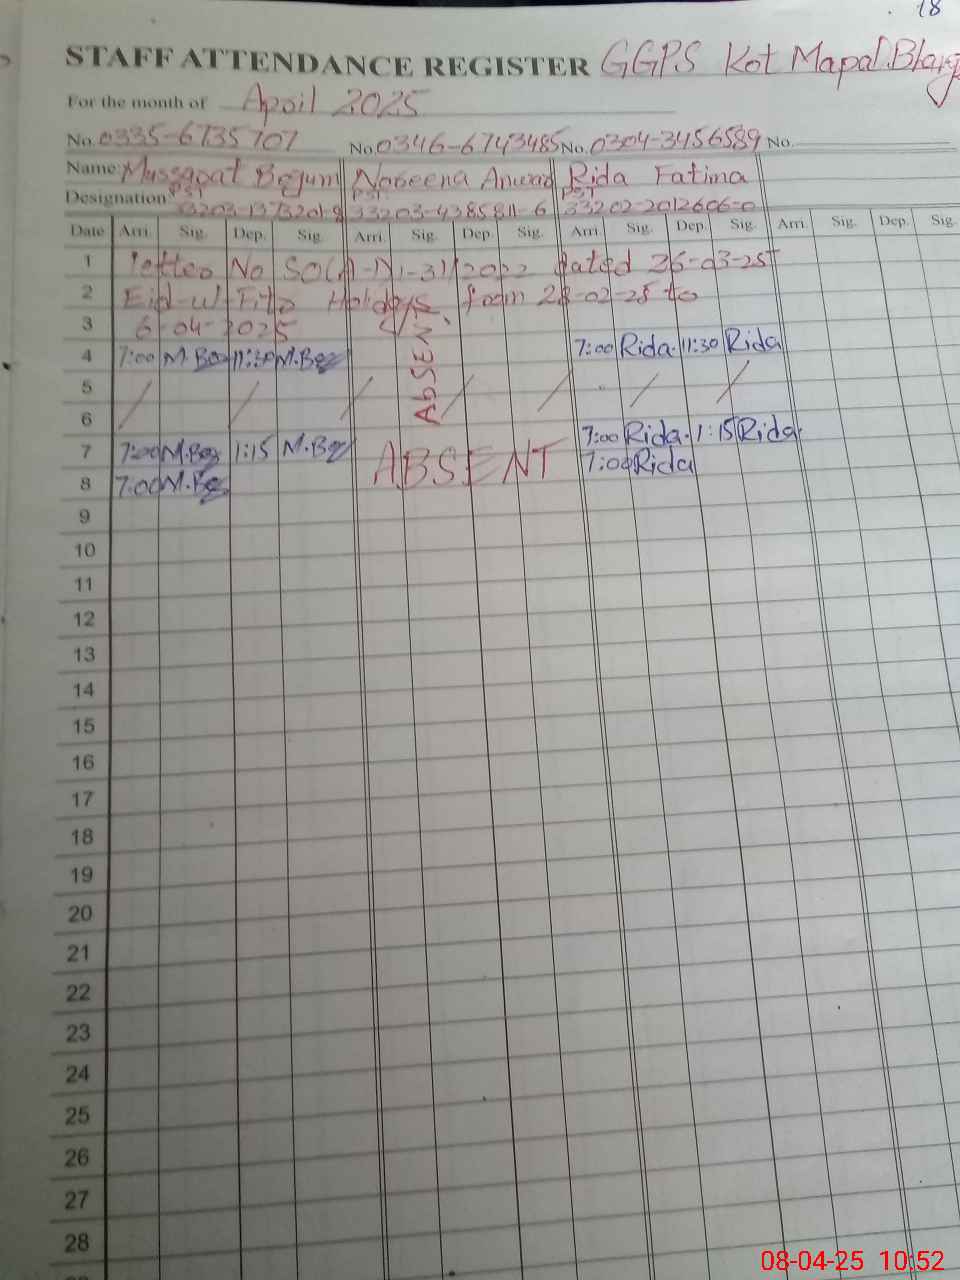 18
STAFF ATTENDANCE REGISTER GGPS Kot Mapal
For the month of April 2025
No. 0335-6735707 No. 0346-6743485 No. 0304-3456589 No.
Name: Mussarat Begum Nabeena Anwar Rida Fatima
Designation PST PST PST
33203-4385811-6 33202-2012606-0
Date Arri. Sig. Dep. Sig. Arri. Sig. Dep. Sig. Arri. Sig. Dep. Sig. Arri. Sig. Dep. Sig.
1 letter No dated 26-03-25
2 Eid-ul-Fitr Holidays from 28-02-25 to
3 6-04-2025
4 7:00 M.Beg 11:30 M.Beg AbSEN 7:00 Rida 11:30 Rida
5
6
7 7:00 M.Beg 1:15 M.Beg ABSENT 7:00 Rida 1:15 Rida
8 7:00 M.Beg 7:00 Rida
9
10
11
12
13
14
15
16
17
18
19
20
21
22
23
24
25
26
27
28
08-04-25 10:52